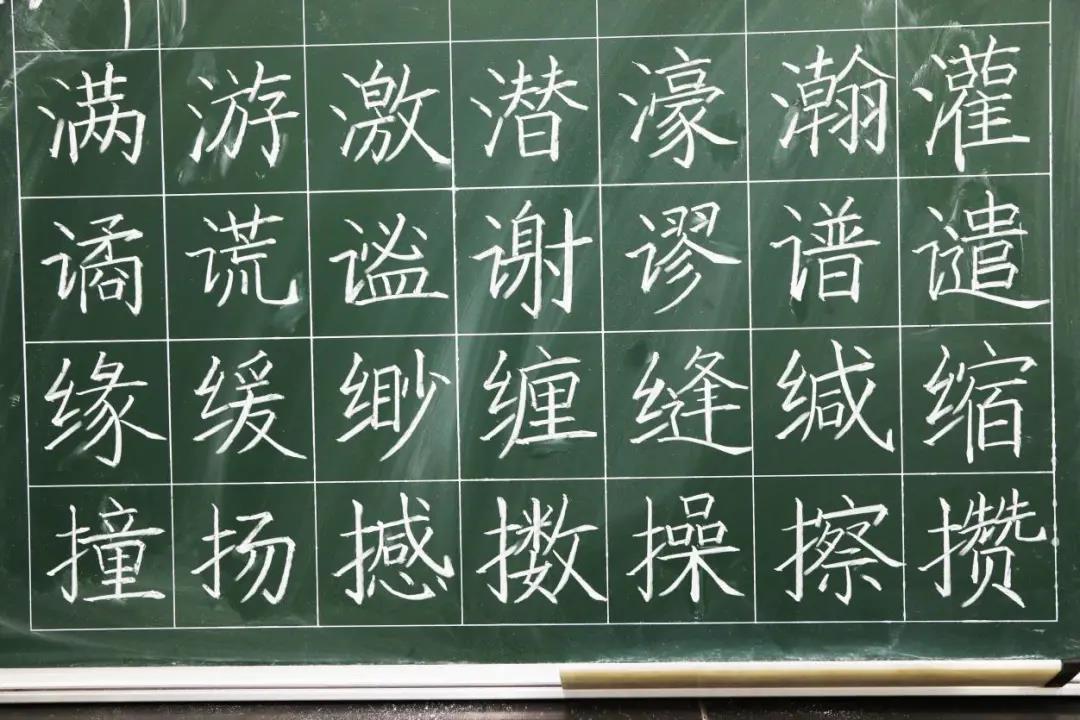 满游激潜濠瀚灌
谲谎谧谢谬谱谴
缘缓缈缠缝缄缩
撞扬撼擞操擦攒